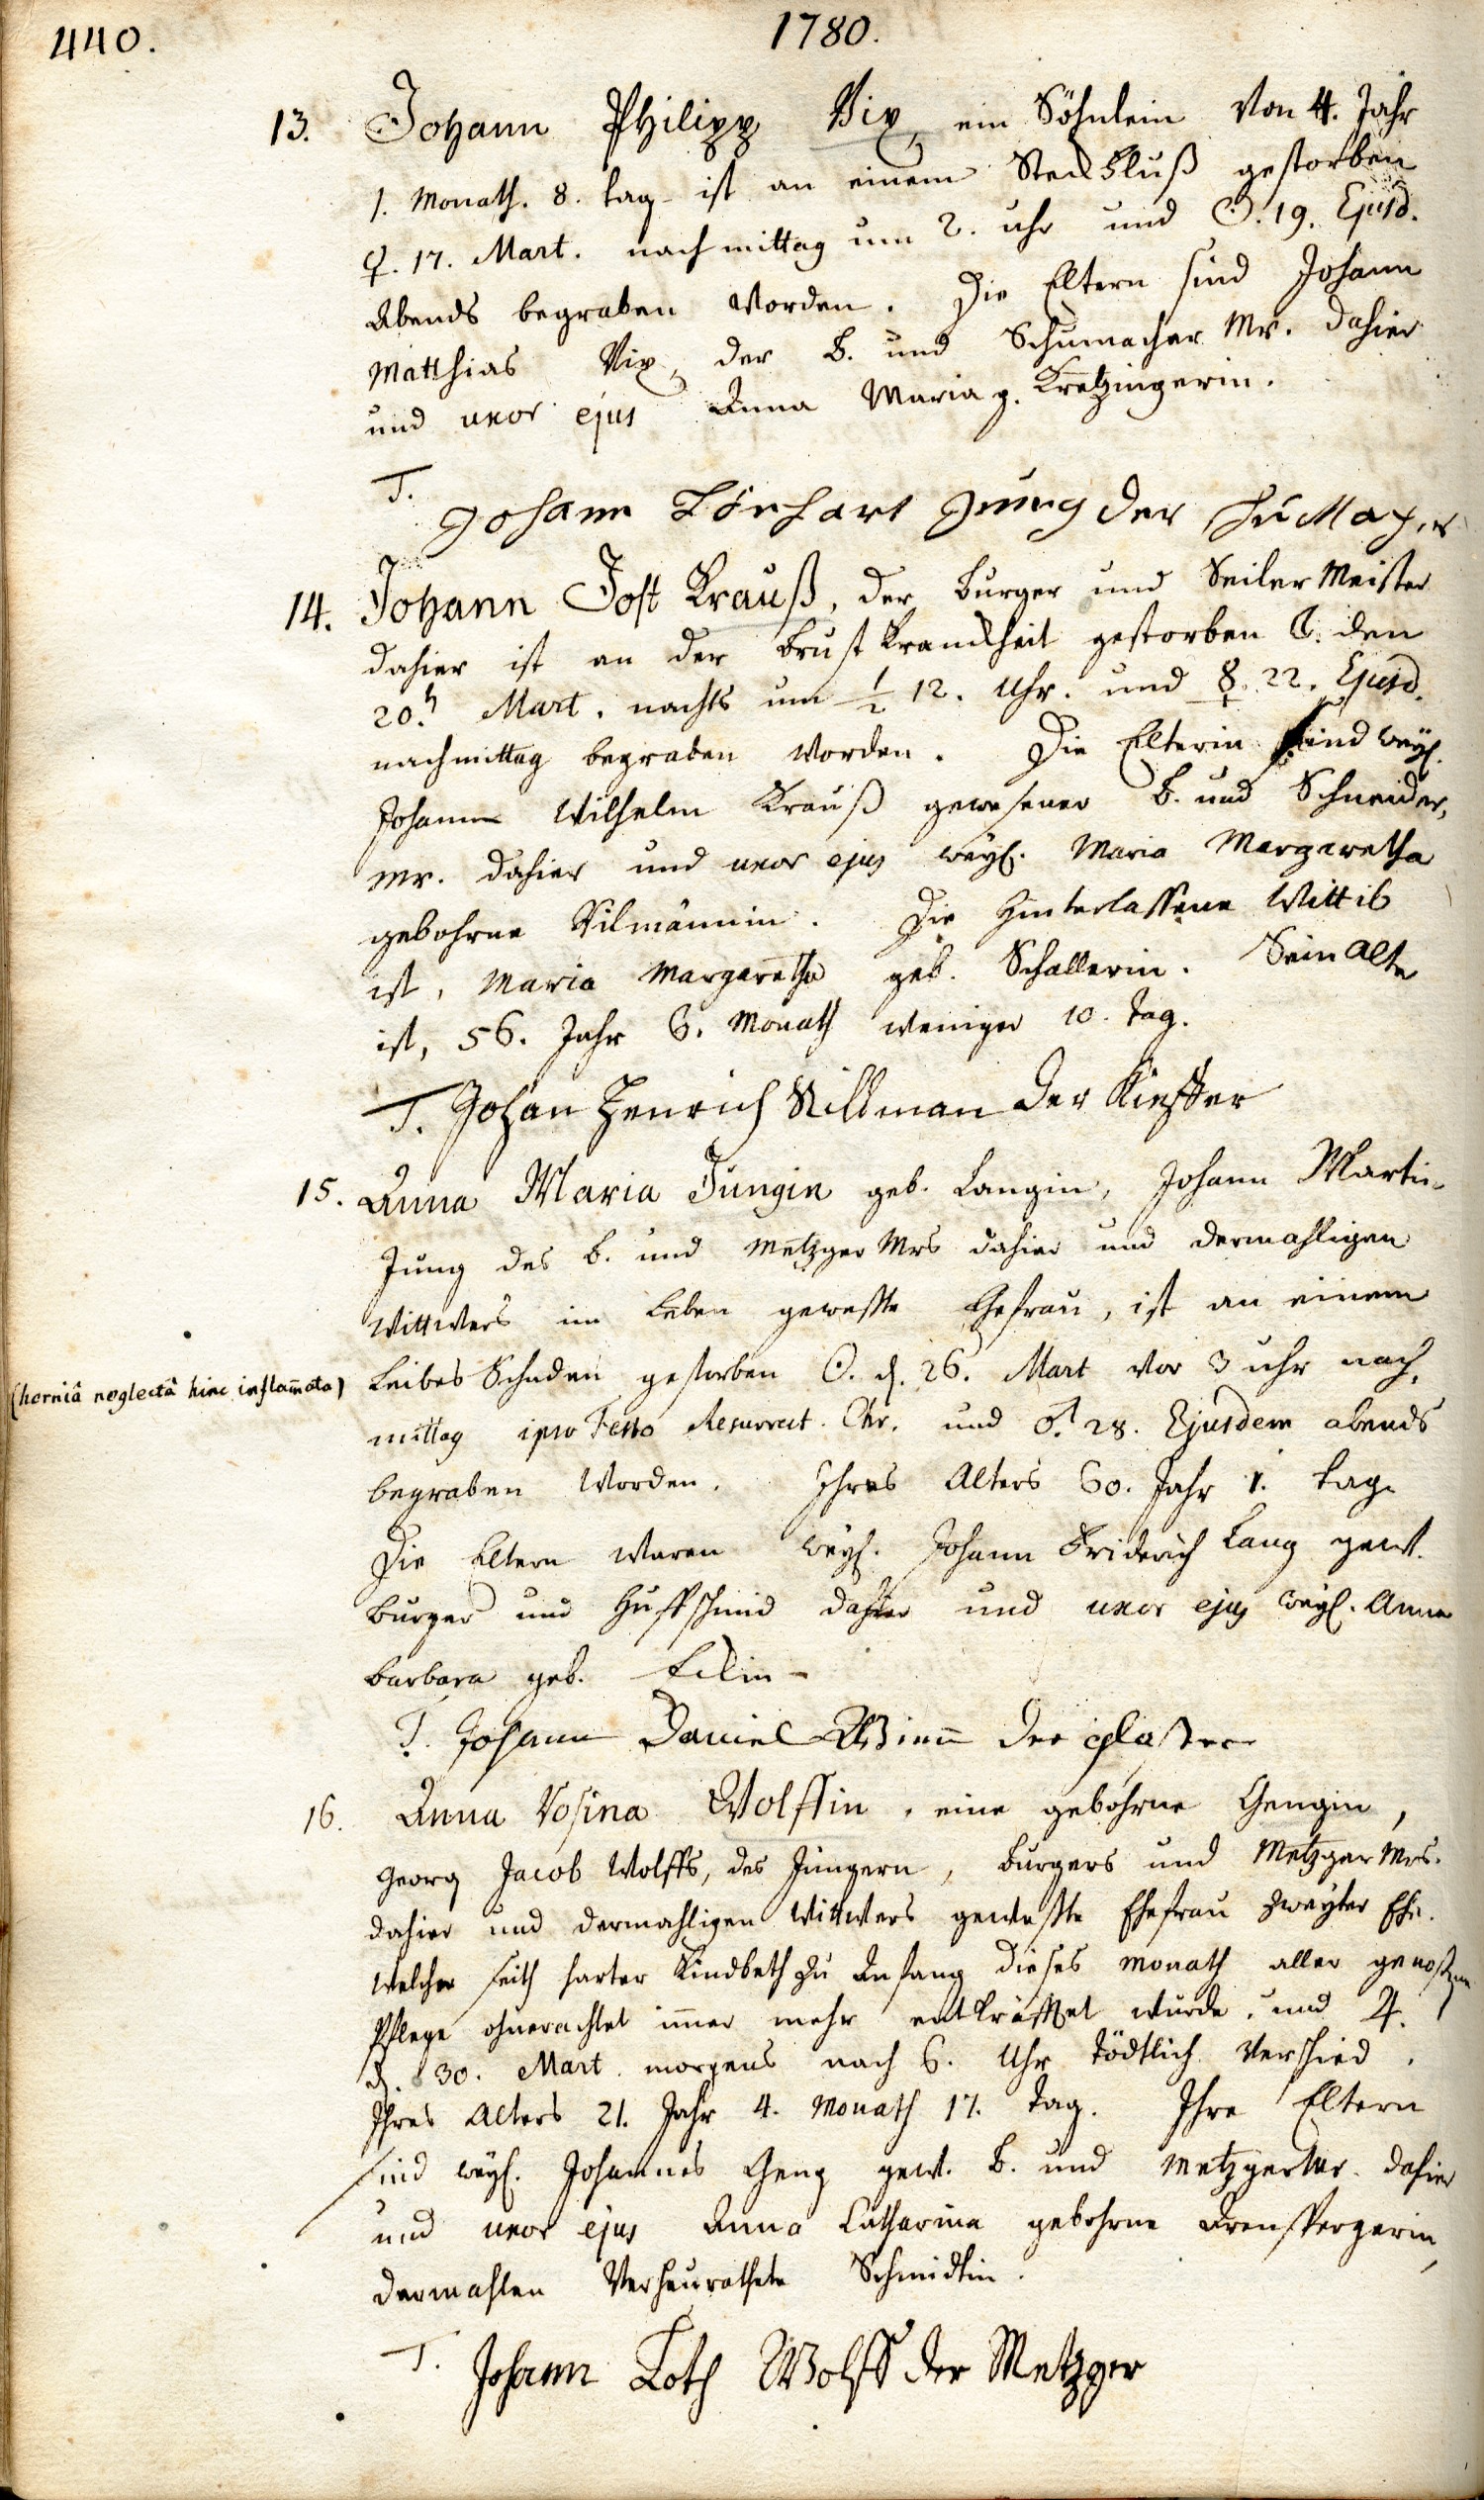 440.
1780.
13. Johann Philipp Vix, ein Söhnlein von 4. Jahr
1. Monath. 8. tag ist an einem Steckfluß gestorben
♀. 17. Mart. nachmittag um 2. uhr und ☉. 19. Ejusd.
Abends begraben worden. Die Eltern sind Johann
Matthias Vix, der B. und Schumacher Mr. dahier
und uxor ejus Anna Maria g. Kretzingerin.
T.
Johann Jung der
14. Johann Jost Krauß, der burger und Seiler Meister
dahier ist an der brust kranckheit gestorben ☾. den
20. Mart. nachts um ½ 12. Uhr. und ☿. 22. Ejusd.
nachmittag begraben worden. Die Elterin sind weyl.
Johann Wilhelm Krauß gewesener B. und Schneider,
Mr. dahier und uxor ejus weyl. Maria Margaretha
gebohrne Vilmännin. Die hinterlassene Wittib
ist, Maria Margaretha geb. Schallerin. Sein Alter
ist, 56. Jahr 6. Monath weniger 10. tag.
T. Johan Henrich Killman der Kieffer
15. Anna Maria Jungin geb. Langin, Johann Martin
Jung des b. und Metzger Mrs dahier und dermahligen
Wittwers im Leben geweßte Ehefrau, ist an einem
(hernia neglectâ hinc inflam̄ata)
Leibes Schaden gestorben ☉. d. 26. Mart vor 3 uhr nach,
mittag ipso Festo Resurrect. Chr. und ♂. 28. Ejusdem abends
begraben worden. Ihres Alters 60. Jahr 1. tag.
Die Eltern waren weyl. Johann Friderich Lang gew.
burger und Huffschmid dahier und uxor ejus weyl. Anna
barbara geb. Eckin
T. Johann Daniel der glaser
16. Anna Rosina Wolffin, eine gebohrne Gengin,
Georg Jacob Wolffs, des Jüngern, burgers und Metzger Mrs.
dahier und dermahligen Wittwers geweßte Ehefrau zweyter Ehe.
welche seith harter Kindbeth zu Anfang dieses Monath aller genoßnen
Pflege ohnerachtet im̄er mehr entkräfftet wurde, und ♃.
d. 30. Mart. morgens nach 6. Uhr tödtlich verschied.
Ihres Alters 21. Jahr 4. Monath 17. tag. Ihre Eltern
sind weyl. Johannes Geng gew. B. und Metzger Mr. dahier
und uxor ejus Anna Catharina gebohrne
dermahlen verheurathete Schmidtin.
T. Johann Loth Wolff der Metzger